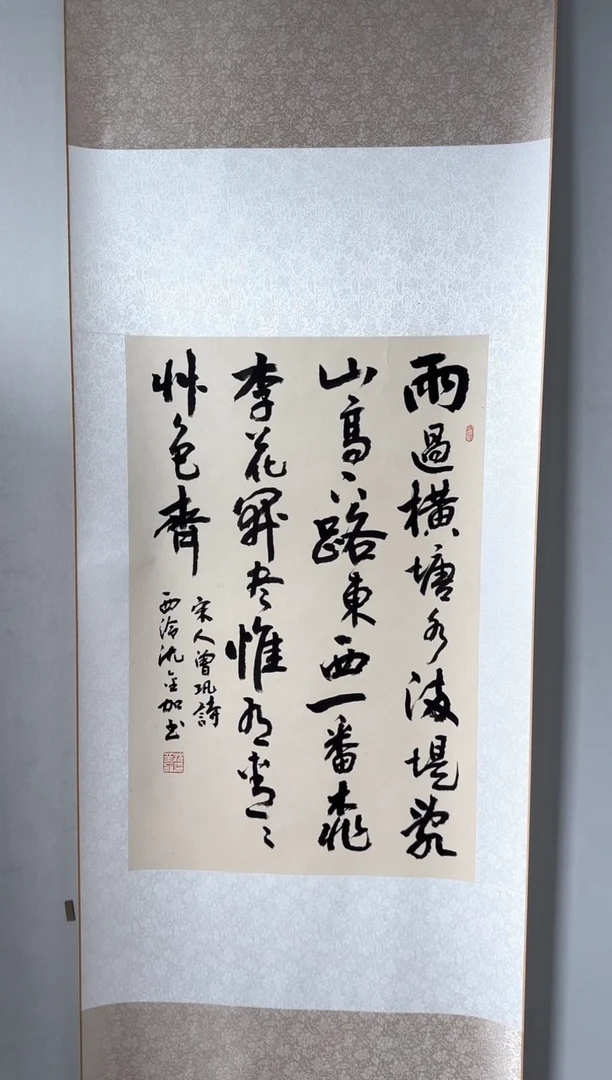 雨過橫塘水滿堤亂
山高下路東西一番桃
李花開盡惟有青〻
艸色齊
宋人曾鞏詩
西泠沈金加书